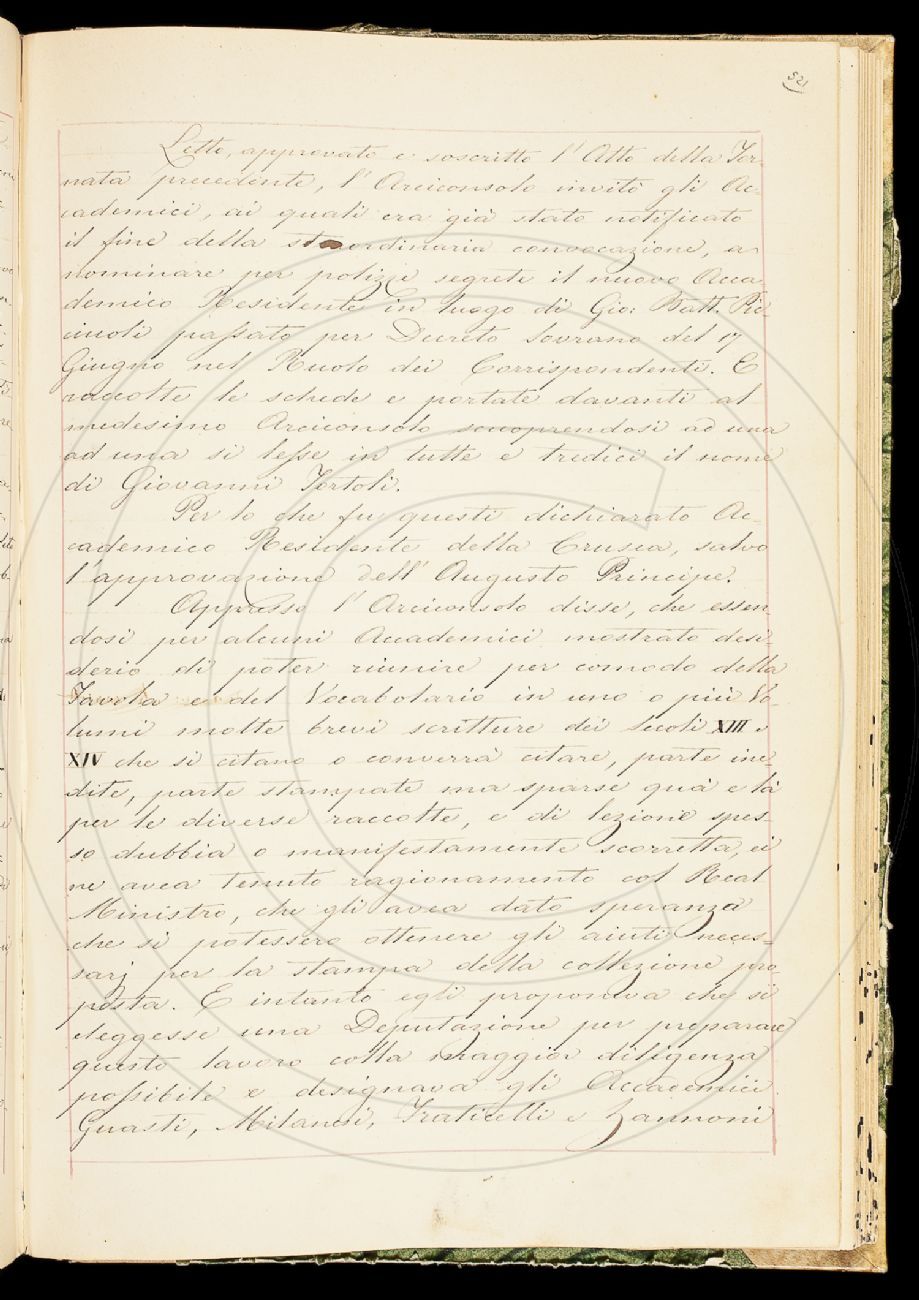 521
Letto, approvato e soscritto l'Atto della Tor-
nata precedente, l'Arciconsolo invitò gli Ac-
cademici, ai quali era già stato notificato
il fine della straordinaria convocazione, a
nominare per polizze segrete il nuovo Acca-
demico Residente in luogo di Gio: Batt. Pic-
ciuoli passato per Decreto Sovrano del 17
Giugno nel Ruolo dei Corrispondenti. E
raccolte le schede e portate davanti al
medesimo Arciconsolo scuoprendosi ad una
ad una si lesse in tutte e tredici il nome
di Giovanni Tortoli.
Per lo che fu questi dichiarato Ac-
cademico Residente della Crusca, salvo
l'approvazione dell'Augusto Principe.
Appresso l'Arciconsolo disse, che essen-
dosi per alcuni Accademici mostrato desi-
derio di poter riunire per comodo della
Tavola e del Vocabolario in uno o più Vo-
lumi molte brevi scritture dei Secoli XIII e
XIV che si citano o converrà citare, parte ine-
dite, parte stampate ma sparse quà e là
per le diverse raccolte, e di lezione spes-
so dubbia o manifestamente scorretta, ei
ne avea tenuto ragionamento col Real
Ministro, che gli avea dato speranza
che si potessero ottenere gli aiuti neces-
sarj per la stampa della collezione pro-
posta. E intanto egli proponeva che si
eleggesse una Deputazione per preparare
questo lavoro colla maggior diligenza
possibile e designava gli Accademici
Guasti, Milanesi, Fraticelli e Zannoni